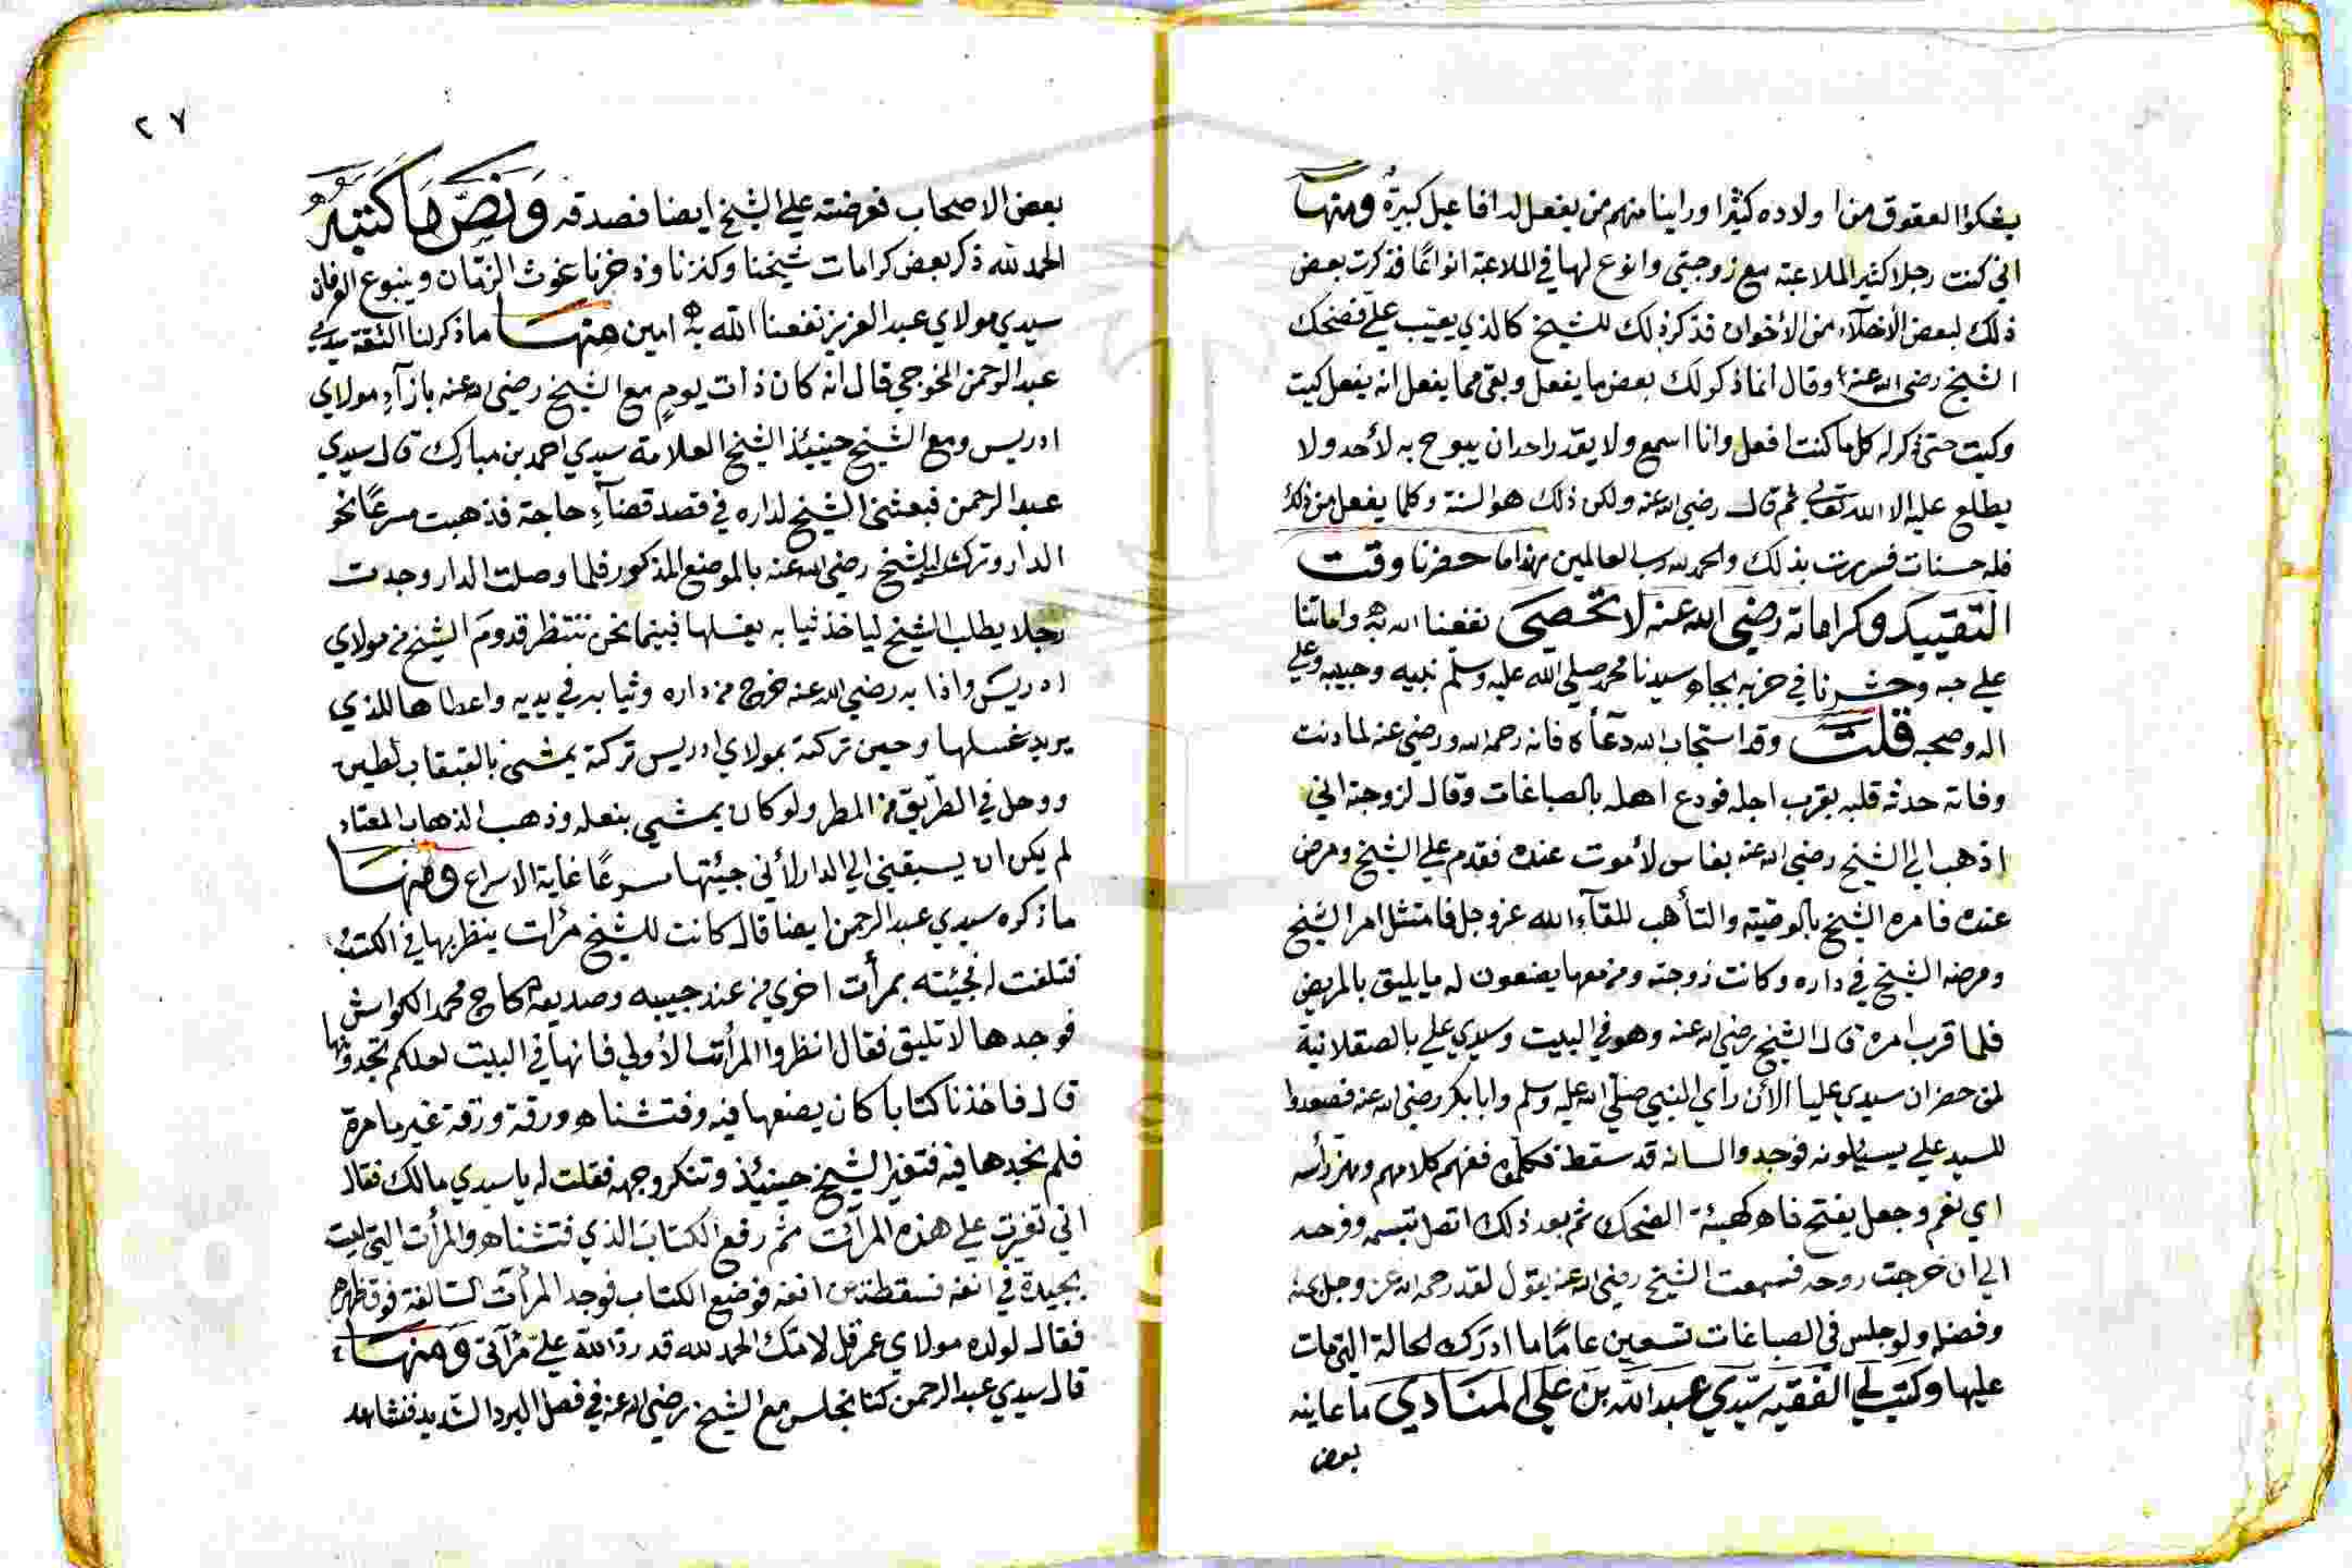 يشكوا العقوق من اولاده كثيرا وراينا منهم من يفعل له افاعيل كبيرة ومنها
اني كنت رجلا كثير الملاعبة مع زوجتي وانوع لها في الملاعبة انواعًا فذكرت بعض
ذلك لبعض الأخلآء من الأخوان فذكر ذلك للشيخ كالذي يعيّب علي فضحك
الشيخ رضي الله عنه وقال انما ذكر لك بعض ما يفعل وبقي مما يفعل انه يفعل كيت
وكيت حتى ذكر له كل ما كنت افعل وانا اسمع ولا يقدر احد ان يبوح به لأحد ولا
يطلع عليه الا الله تعالى ثم قال رضي الله عنه ولكن ذلك هو السنة وكلما يفعل من ذلك
فله حسنات فسررت بذلك والحمد لله رب العالمين هذا ما حضرنا وقت
التقييد وكراماته رضي الله عنه لا تحصى نفعنا الله به واماتنا
علي حبه وحشرنا في حزبه بجاه سيدنا محمد صلي الله عليه وسلم نبيه وحبيبه وعلي
اله وصحبه قلت وقد استجاب الله دعآءه فانه رحمه الله ورضي عنه لما دنت
وفاته حدثه قلبه بقرب اجله فودع اهله بالصباغات وقال لزوجته اني
اذهب الي الشيخ رضي الله عنه بفاس لأموت عنده فقدم علي الشيخ ومرض
عنده فامره الشيخ بالوصية والتأهب للقآء الله عز وجل فامتثل امر الشيخ
ومرضه الشيخ في داره وكانت زوجته ومن معها يصنعون له ما يليق بالمريض
فلما قرب امره قال الشيخ رضي الله عنه وهو في البيت وسيدي علي بالصقلابية
لمن حضر ان سيدي عليا الأن رأي النبي صلي الله عليه وسلم وابا بكر رضي الله عنه فصعدوا
للسيد علي يسيلونه فوجدوا لسانه قد سقط فكلموه ففهم كلامهم وهز رأسه
اي نعم وجعل يفتح فاه كهيئة الضحك ثم بعد ذلك اتصل تبسمه وفرحه
الي ان خرجت روحه فسمعت الشيخ رضي الله عنه يقول لقد رحمه الله عز وجل بمنه
وفضله ولو جلس في الصباغات تسعين عامًا ما ادرك الحالة التي مات
عليها وكتب لي الفقيه سيدي عبد الله بن علي المنادي ما عاينه
بعض
٢٧
بعض الاصحاب فعرضته علي الشيخ ايضا فصدقه ونص ما كتبه
الحمد لله ذكر بعض كرامات شيخنا وكنزنا وذخرنا غوث الزمان وينبوع العرفان
سيدي مولاي عبد العزيز نفعنا الله به امين منها ما ذكر لنا الثقة سيدي
عبد الرحمن المخوجي قال انه كان ذات يوم مع الشيخ رضي الله عنه بازآء مولاي
ادريس ومع الشيخ حينيئذ الشيخ العلامة سيدي احمد بن مبارك قال سيدي
عبد الرحمن فبعثني الشيخ لداره في قصد قضآء حاجة فذهبت مسرعًا نحو
الدار وتركت الشيخ رضي الله عنه بالموضع المذكور فلما وصلت الدار وجدت
رجلا يطلب الشيخ لياخذ ثيابه يغسلها فبينما نحن ننتظر قدوم الشيخ من مولاي
ادريس واذا به رضي الله عنه خرج من داره وثيابه في يديه واعطاها للذي
يريد غسلها وحين تركته بمولاي ادريس تركته يمشي بالقبقاب لطين
ووحل في الطريق من المطر ولو كان يمشي بنعله وذهب الذهاب المعتاد
لم يكن ان يسبقني الي الدار لأني جيئتها مسرعًا غاية الاسراع ومنها
ما ذكره سيدي عبد الرحمن ايضا قال كانت للشيخ مرأت ينظر بها في الكتب
فتلفت له فجيئته بمرأت اخري من عند حبيبه وصديقه الحاج محمد الكواش
فوجدها لا تليق فقال انظروا المرأت الأولي فانها في البيت لعلكم تجدونها
قال فاخذنا كتابا كان يضعها فيه وفتشناه ورقة ورقة غير ما مرة
فلم نجدها فيه فتغير الشيخ حينيئذ وتنكر وجهه فقلت له يا سيدي مالك فقال
اني تغيرت علي هذه المرآت ثم رفع الكتاب الذي فتشناه والمرأت التي ليت
بجيدة في انفه فسقطت من انفه فوضع الكتاب فوجد المرأت السالفة فوق ظهره
فقال لولده مولاي عمر قل لامك الحمد لله قد رد الله علي مرآتي ومنها
قال سيدي عبد الرحمن كنا نجلس مع الشيخ رضي الله عنه في فصل البرد الشديد فنشاهد